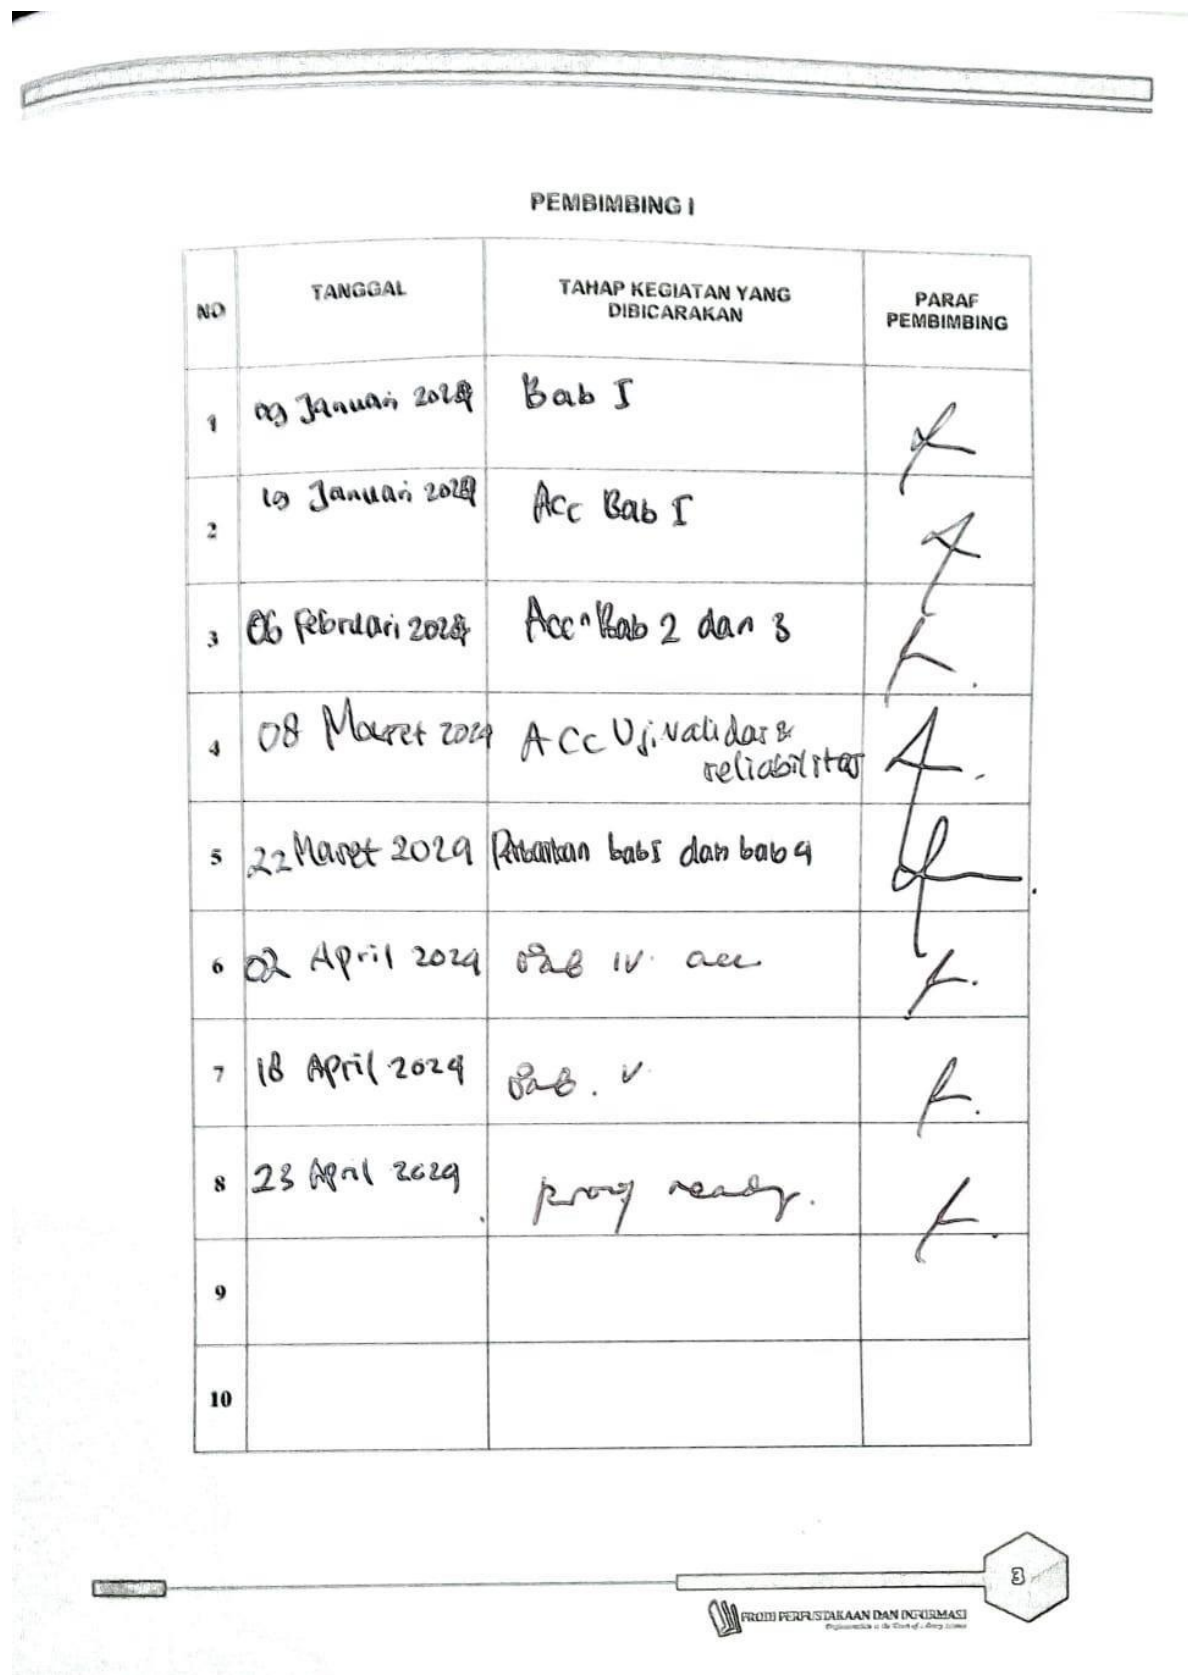 PEMBIMBING I
NO
TANGGAL
TAHAP KEGIATAN YANG
DIBICARAKAN
PARAF
PEMBIMBING
1
09 Januari 2024
Bab I
2
19 Januari 2024
Acc Bab I
3
06 Februari 2024
Acc Bab 2 dan 3
4
08 Maret 2024
Acc Uji validas &
reliabilitas
5
22 Maret 2024
bab I dan bab 4
6
02 April 2024
Bab IV. acc
7
18 April 2024
Bab. V
8
23 April 2024
ready.
9
10
3
PRODI PERPUSTAKAAN DAN INFORMASI